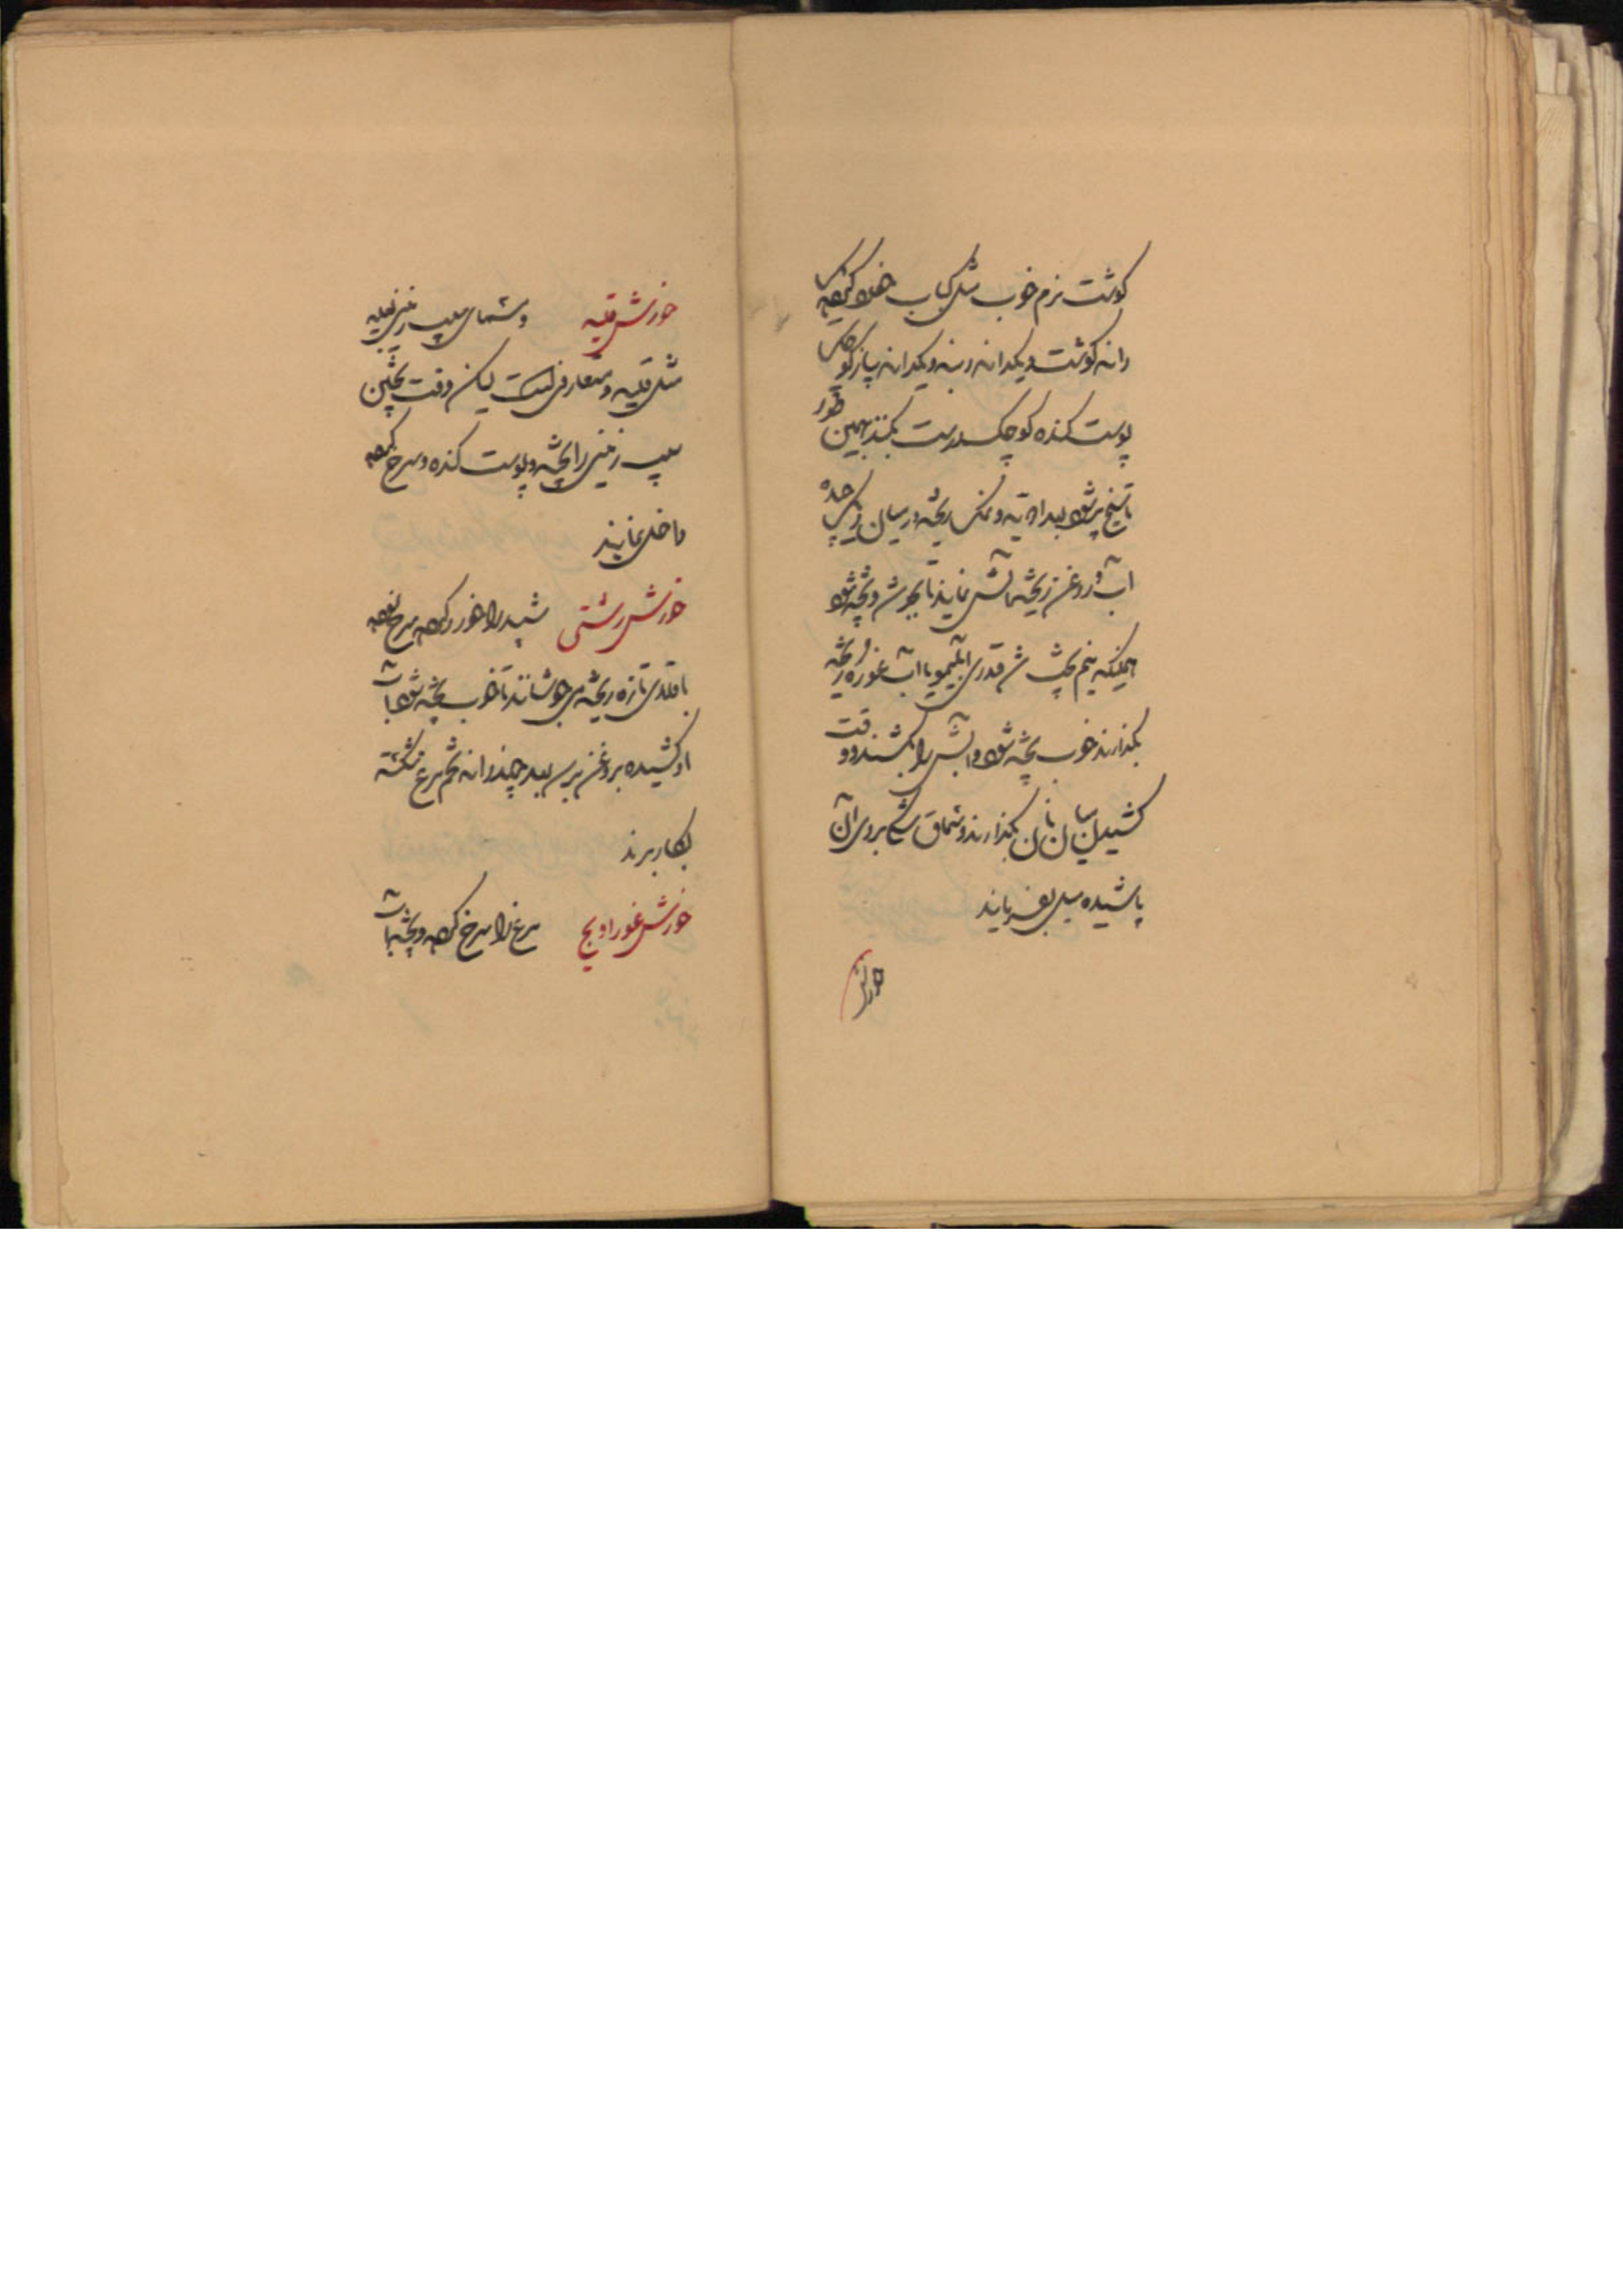 گوشت نرم خوب مثل کباب خورد کرده یک
دانه گوشت و یکدانه دنبه و یکدانه پیاز کوچک
پوست کنده کوچک درست بکنند بهمین طور
تا سیخ پر شود بعد ادویه و نمک ریخته در میان دیک
آب و روغن ریخته آتش نمایند تا بجوش و پخته شود
همینکه نیم پخت شد قدری آبلیمو یا آب غوره ریخته
بگذارند خوب پخته شود و آبش را بکشند و وقت
کشیدن میان نان بگذارند و سماق بروی آن
پاشیده میل بفرمایند
خورش
خورش قلیه سیب زمینی قلیه
مثل قلیه متعارفی است لیکن وقت پختن
سیب زمینی را پخته و پوست کنده و سرخ کرده
داخل نمایند
خورش رشتی شبد را خورد کرده سرخ نموده
باقلای تازه ریخته می جوشانند تا خوب پخته شود آب
او کشیده بروغن بعد چند دانه تخم مرغ شکسته
بکار برند
خورش غوراویج مرغ را سرخ کرده و پخته با آب